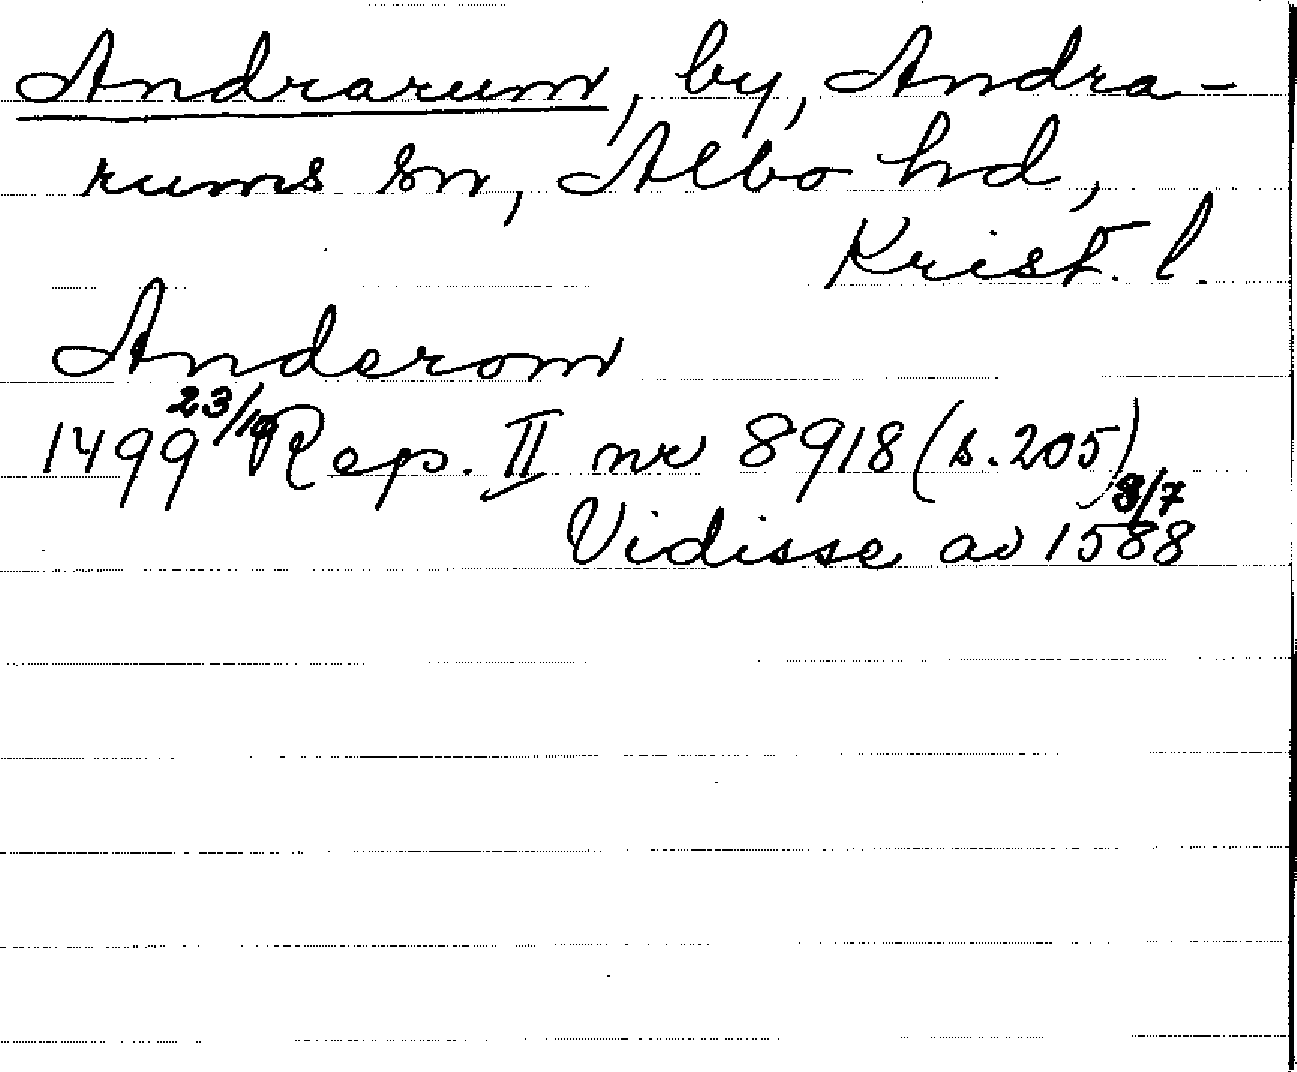 Andrarum, by, Andra-
rums sn, Albo hd,
Krist. l.
Anderom
1499 23/10 Rep. II nr 8918 (s. 205)
Vidisse av 1588 8/7